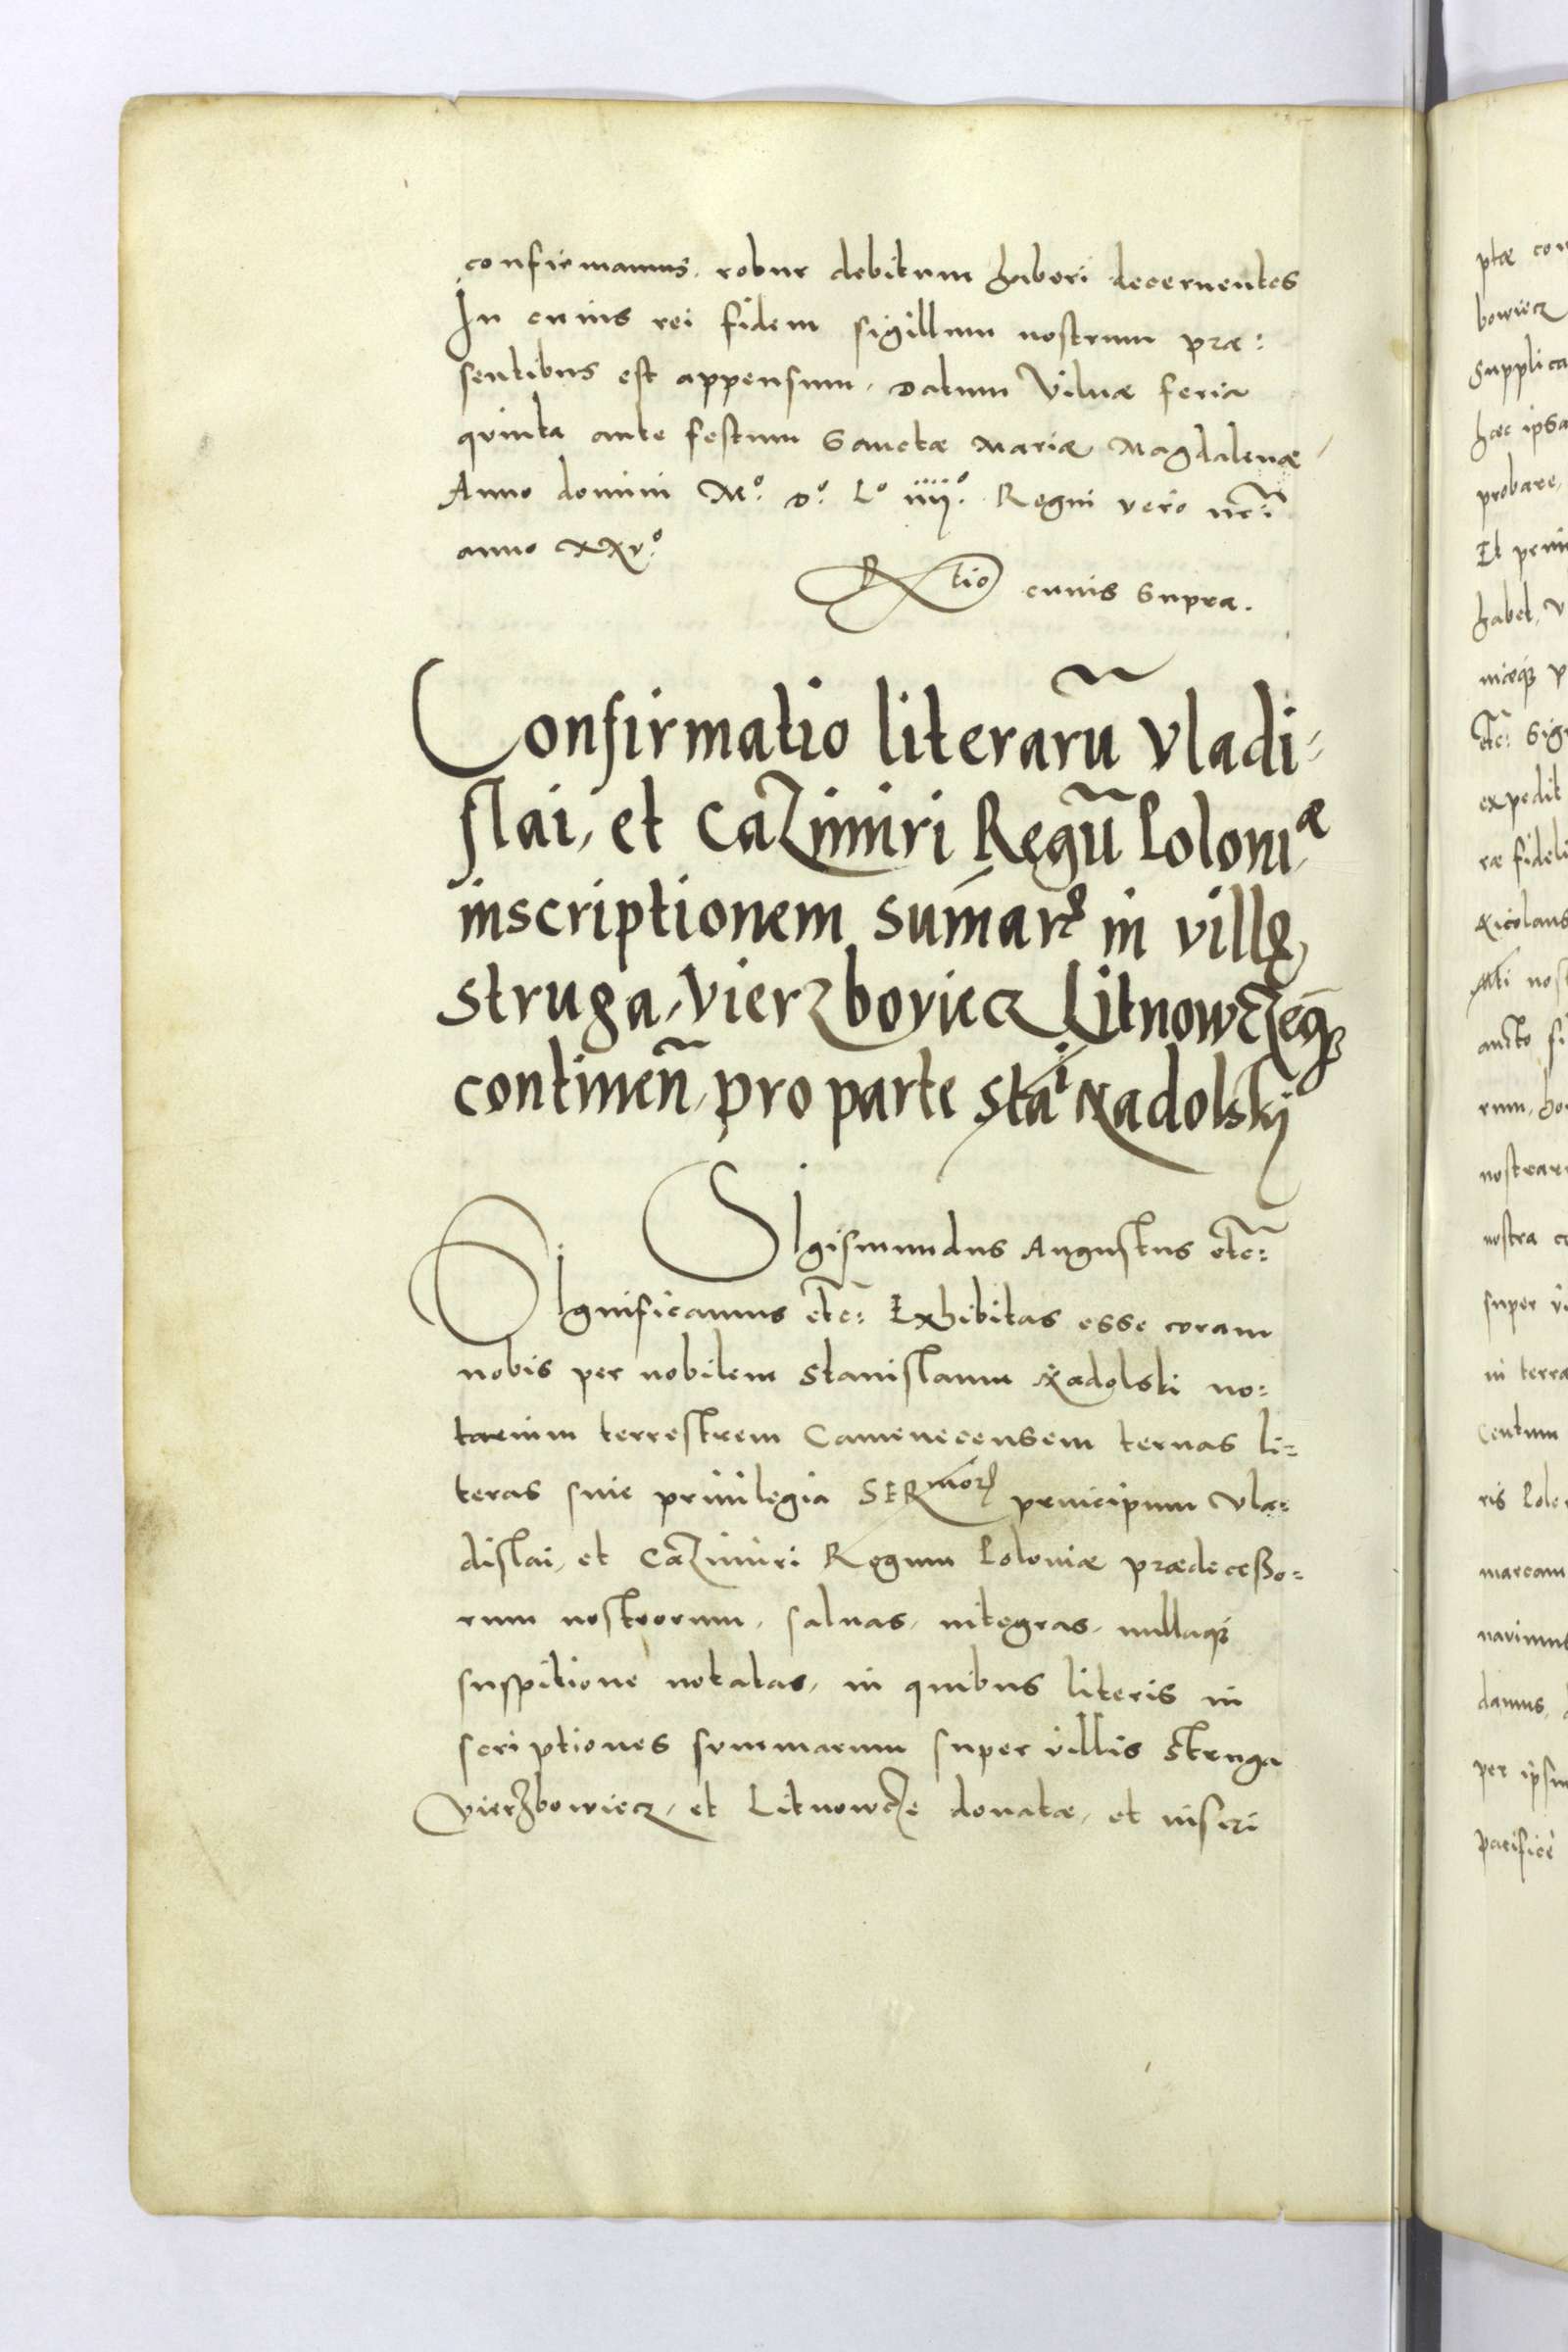 confirmamus. robur debitum haberi decernentes
In cuius rei fidem sigillum nostrum præ:
sentibus est appensum. Datum Vilnæ feria
quinta ante festum Sanctæ Mariæ Magdalenæ
Anno domini Mº. Dº. Lº iiijº. Regni vero nr̃i
anno xxvº.
Rtio cuius supra.
Confirmatio literarũ Vladi-
slai, et Cazimiri Regũ Poloniæ
inscriptionem sum̃arꝫ in villis
Struga, Vierzbowiecz Litnowczeqꝫ
continen̄, pro parte Stai Nadolski
Sigismundus Augustus etc̃:
Significamus etc̃: Exhibitas esse coram
nobis per nobilem Stanislaum Nadolski no:
tarium terrestrem Camenecensem ternas li:
teras siue priuilegia SERmorꝫ principum Vla:
dislai, et Cazimiri Regum Poloniæ prædeceßo:
rum nostrorum, saluas, integras, nullaqꝫ
suspitione notatas, in quibus literis in
scriptiones summarum super villis Struga
Vierzbowiecz, et Litnowcze donatæ, et inscri
ptæ con
bowiecz
Supplica
hæc ipsa
probare,
habet,
etc̃: Sig
expedit
ræ fideli
Nicolaus
nost
rum, ho
nostrar
nostra
super
in terra
Centum
ris Polo
marcam
nauimus
damus,
per ipsu
pacifice